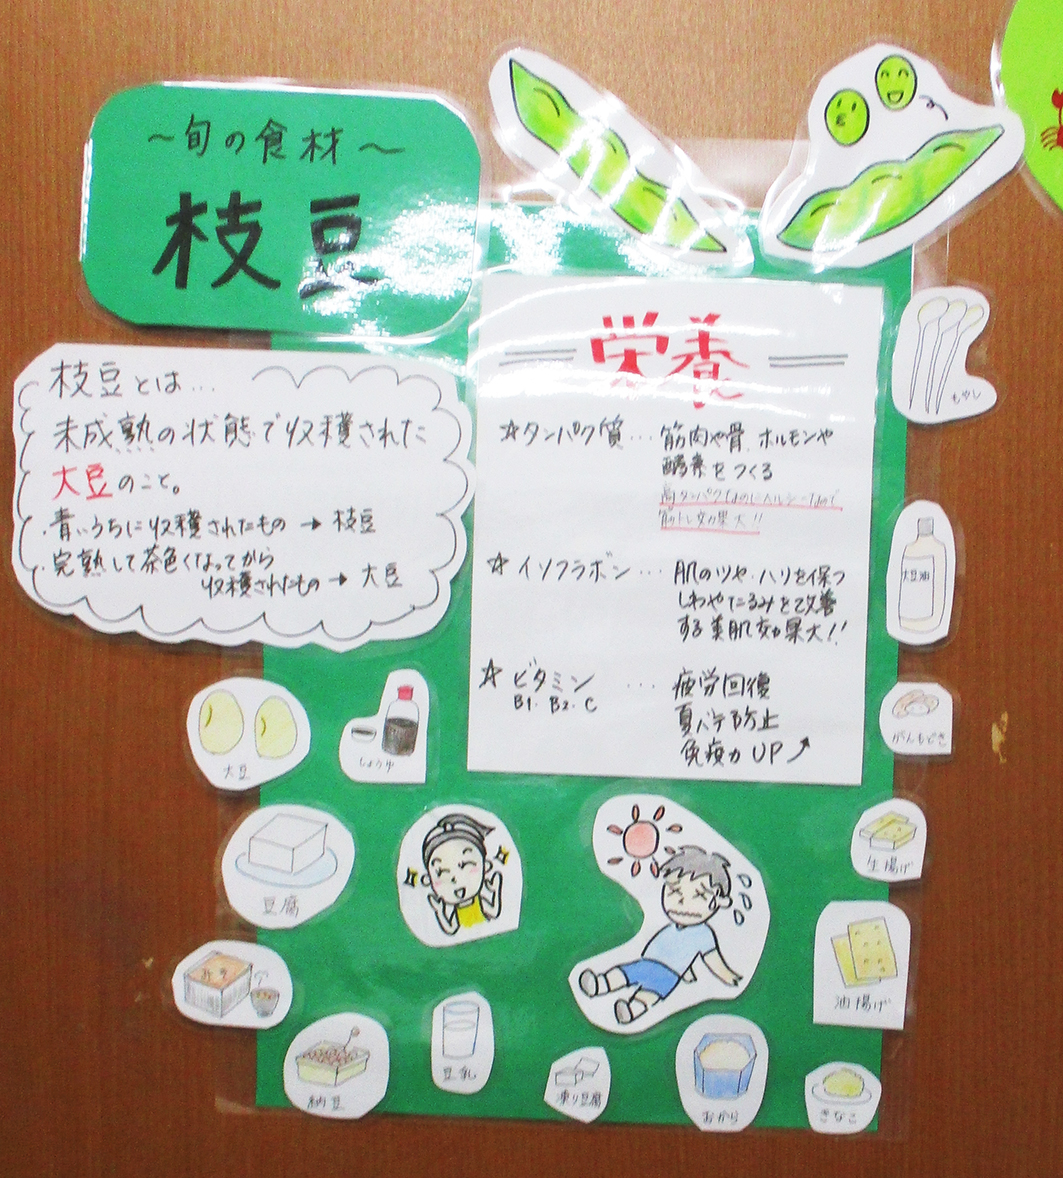 ～旬の食材～
枝豆
枝豆とは...
未成熟の状態で収穫された
大豆のこと。
・青いうちに収穫されたもの → 枝豆
・完熟して茶色くなってから
収穫されたもの → 大豆
栄養
☆タンパク質... 筋肉や骨、ホルモンや
酵素をつくる
高タンパクなのにヘルシーなので
筋トレ効果大!!
☆イソフラボン... 肌のツヤ・ハリを保つ
しわやたるみを改善
する美肌効果大!!
☆ビタミン ... 疲労回復
B1・B2・C
夏バテ防止
免疫力UP↗
もやし
大豆油
がんもどき
生揚げ
油揚げ
大豆
しょうゆ
豆腐
みそ
納豆
豆乳
凍り豆腐
おから
きなこ